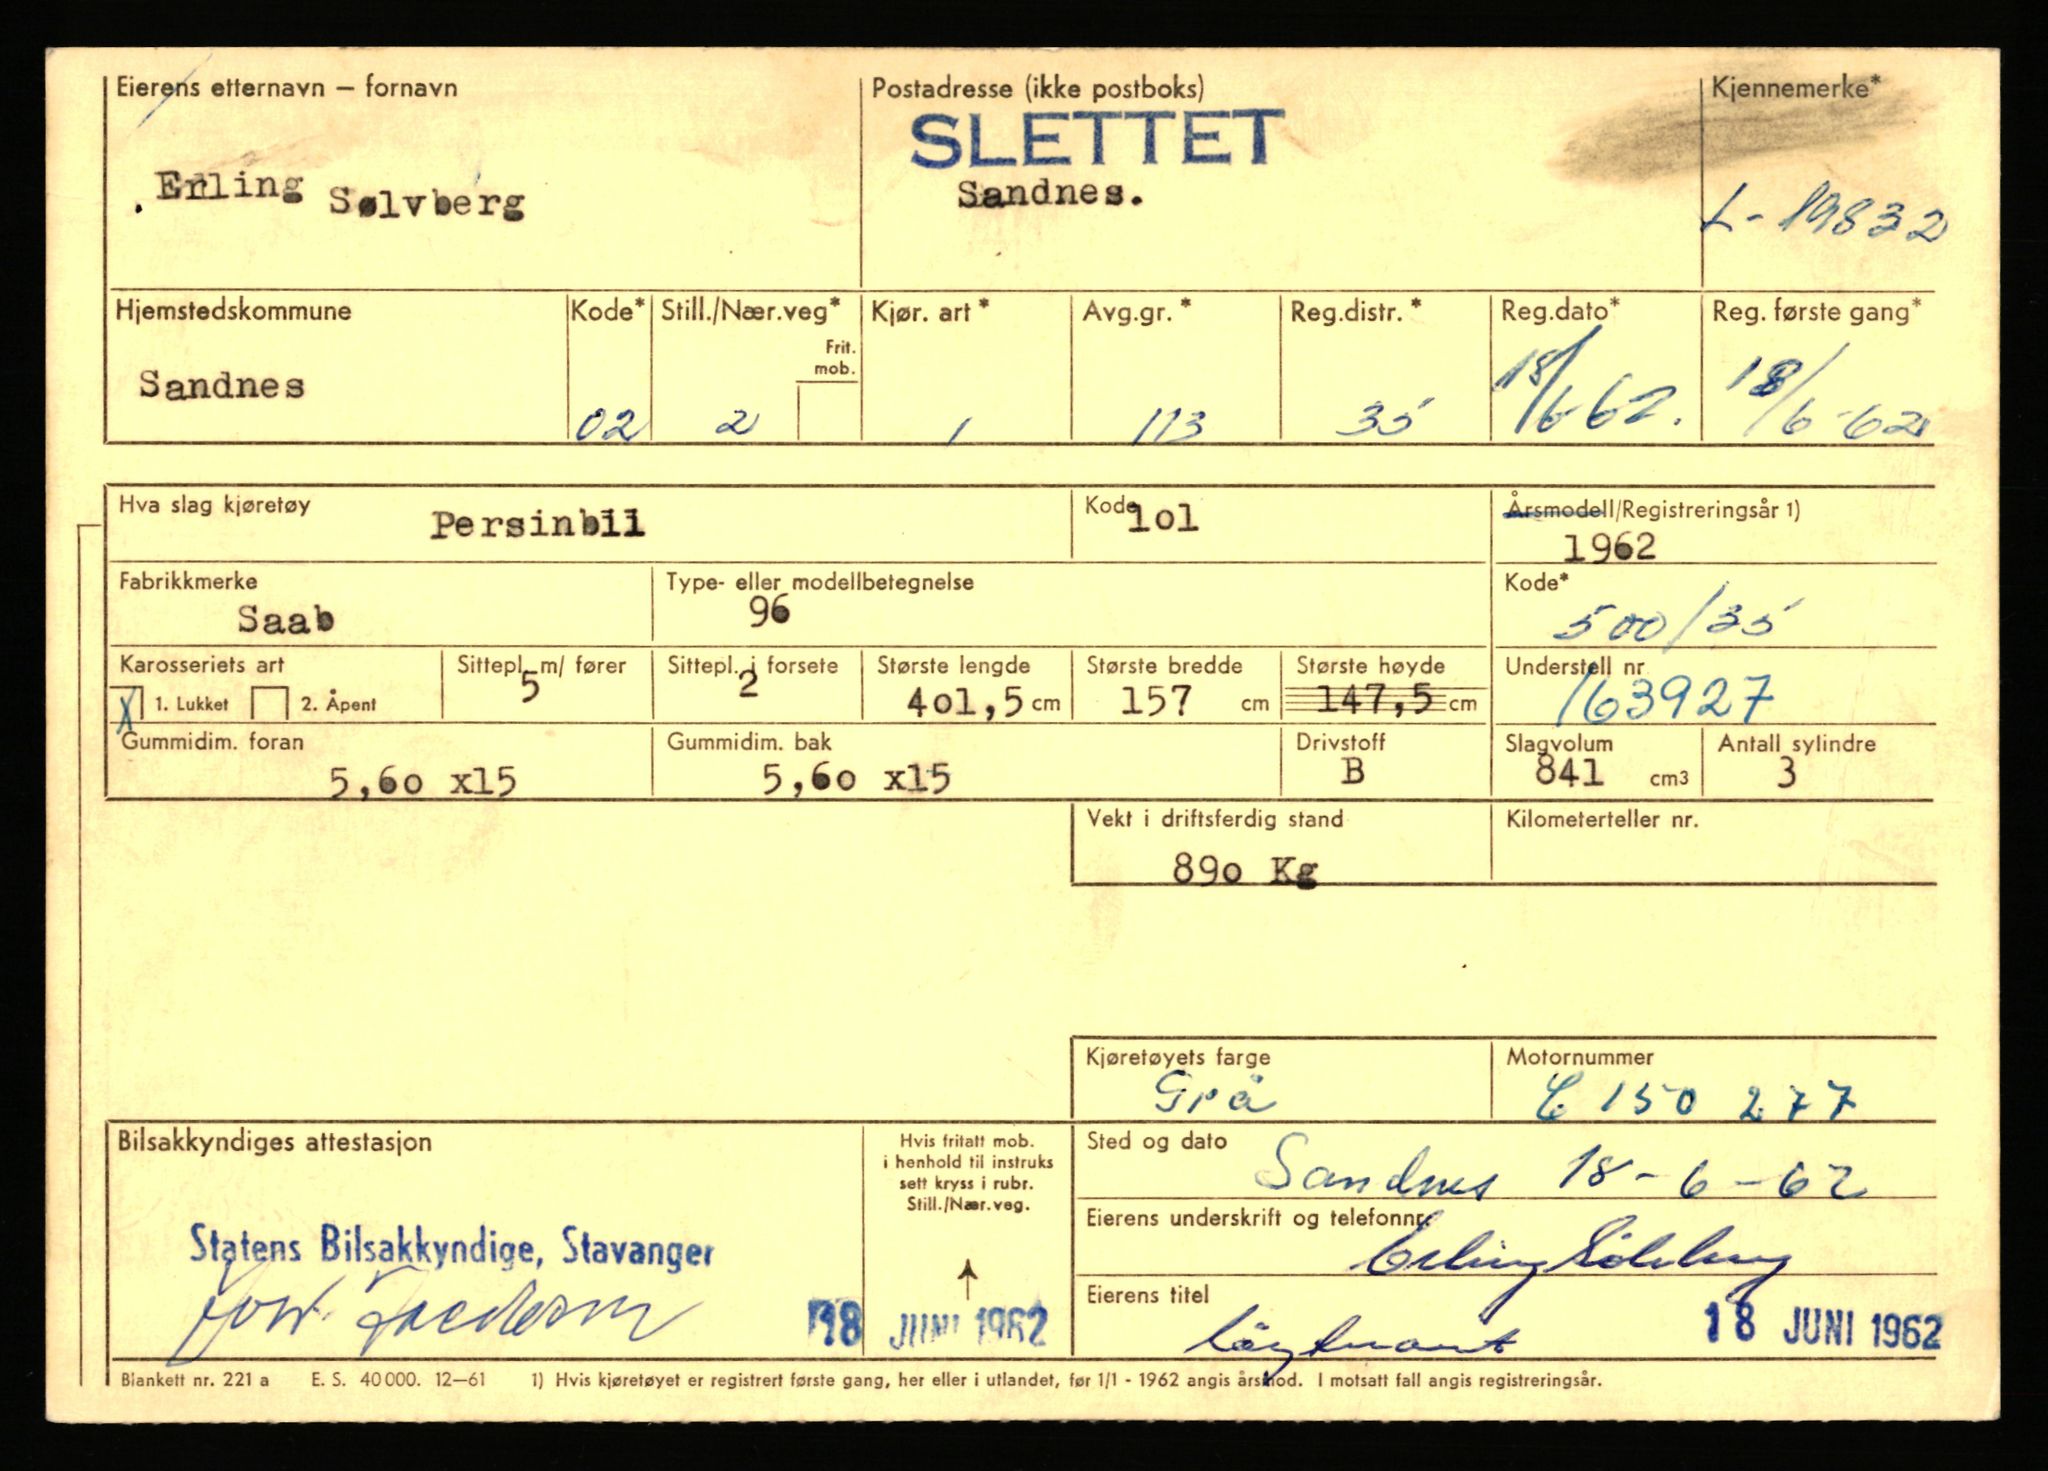 Eierens etternavn – fornavn
Postadresse (ikke postboks)
Kjennemerke*
SLETTET
Erling Sølvberg
Sandnes.
L-19832
Hjemstedskommune
Kode*
Still./Nær.veg*
Kjør. art*
Avg.gr.*
Reg.distr.*
Reg.dato*
Reg. første gang*
Frit. mob.
Sandnes
02
2
1
113
35
18/6-62.
18/6-62
Hva slag kjøretøy
Persinbil
Kode
101
Årsmodell/Registreringsår 1)
1962
Fabrikkmerke
Saab
Type- eller modellbetegnelse
96
Kode*
500/35
Karosseriets art
X 1. Lukket 2. Åpent
Sittepl. m/ fører
5
Sittepl. i forsete
2
Største lengde
401,5 cm
Største bredde
157 cm
Største høyde
147,5 cm
Understell nr.
163927
Gummidim. foran
5,60 x15
Gummidim. bak
5,60 x15
Drivstoff
B
Slagvolum
841 cm3
Antall sylindre
3
Vekt i driftsferdig stand
890 Kg
Kilometerteller nr.
Kjøretøyets farge
Grå
Motornummer
C 150 277
Bilsakkyndiges attestasjon
Hvis fritatt mob.
i henhold til instruks
sett kryss i rubr.
Still./Nær.veg.
Sted og dato
Sandnes 18-6-62
Statens Bilsakkyndige, Stavanger
18 JUNI 1962
Eierens underskrift og telefonnr.
Erling Sølvberg
Eierens titel
Løytnant
18 JUNI 1962
Blankett nr. 221 a E. S. 40 000. 12–61 1) Hvis kjøretøyet er registrert første gang, her eller i utlandet, før 1/1 - 1962 angis årsmod. I motsatt fall angis registreringsår.